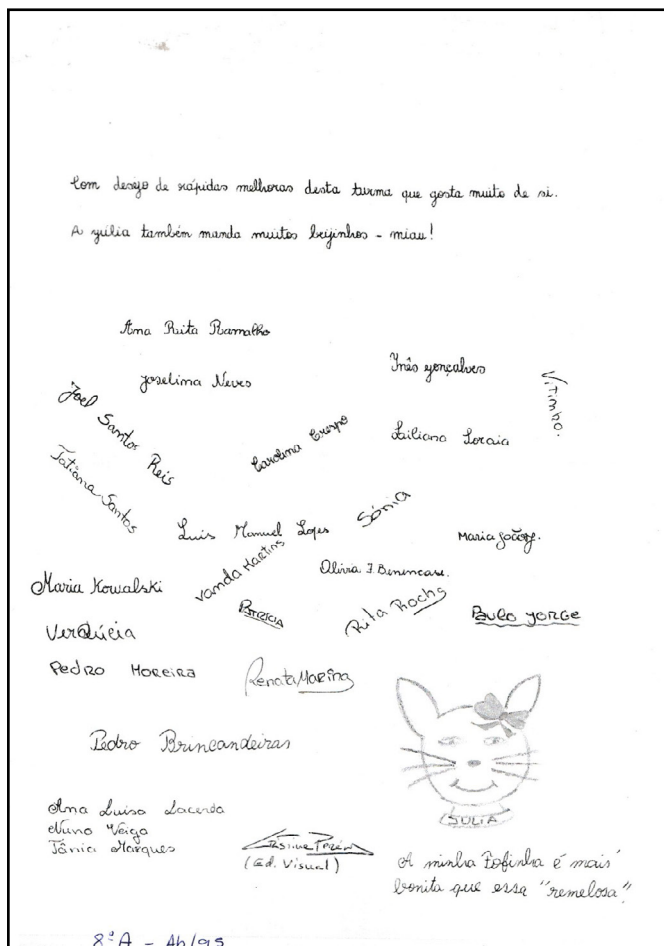 Com desejo de rápidas melhoras desta turma que gosta muito de si.
A Júlia também manda muitos beijinhos - miau!
Ana Rita Ramalho
Joselina Neves
Inês Gonçalves
Vitinho.
Joel Santos Reis
Carolina Crespo
Liliana
Tatiana Santos
Luis Manuel Lopes
Sónia
Maria João
Vanda Martins
Olívia J. Benincase.
Maria Kowalski
Patrícia
Rita Rocha
Paulo Jorge
Vera Lúcia
Pedro Moreira
Renata Marina
Pedro Brincandeiras
JULIA
Ana Luisa Lacerda
Nuno Veiga
Tânia Marques
(Ed. Visual)
A minha Fofinha é mais
bonita que essa "remelosa".
8º A -